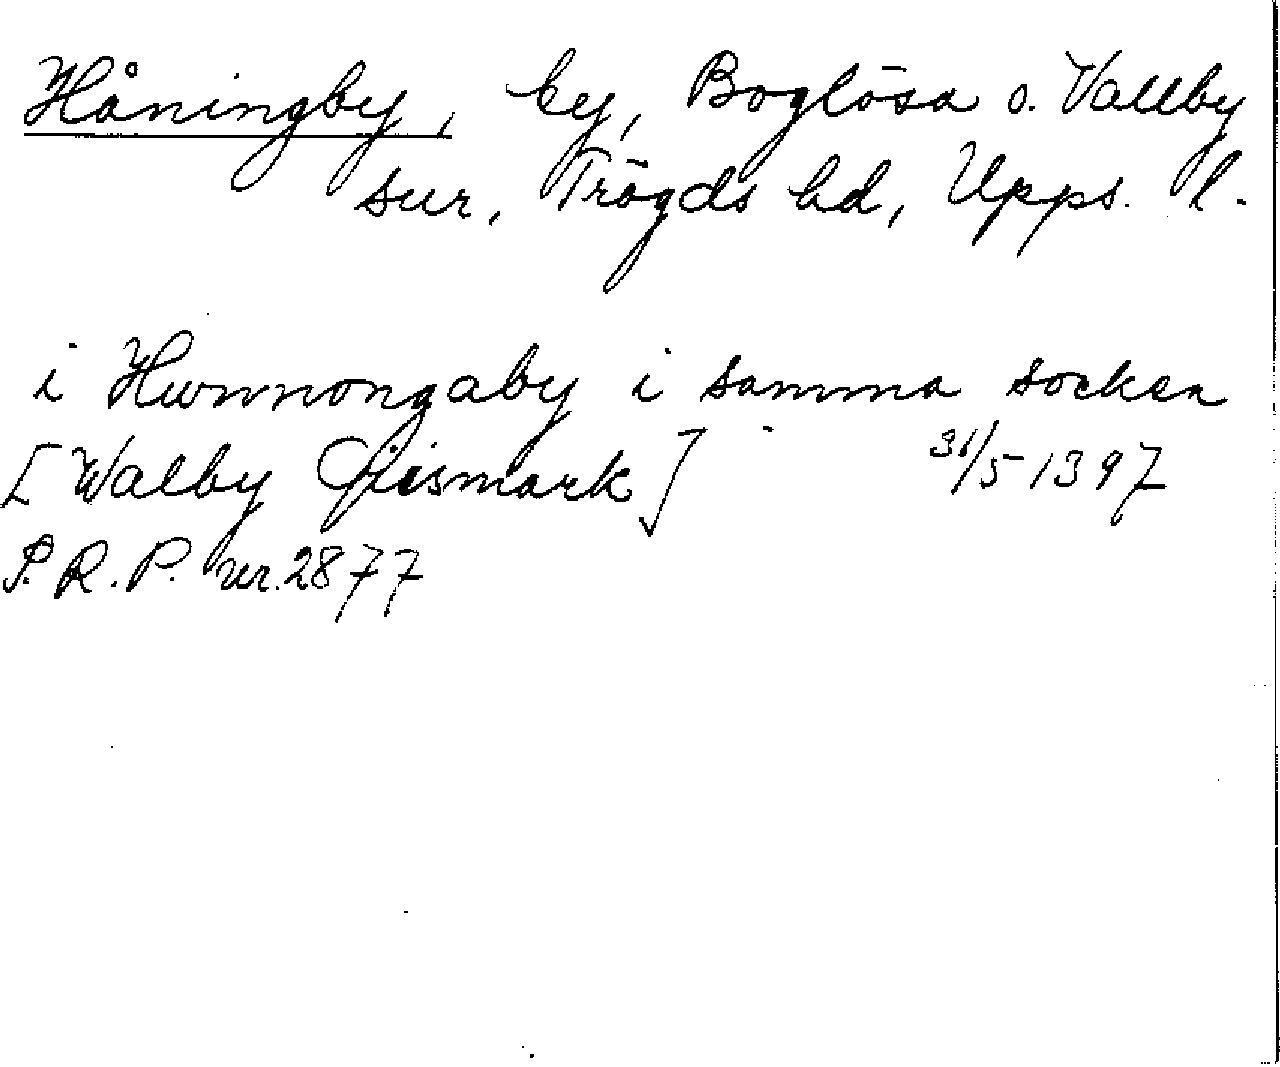 Håningby, by, Boglösa o. Vallby
snr, Trögds hd, Upps. l.
i Hwnnongaby i samma socken
[Walby ] 31/5 1397
P.R.P. nr. 2877